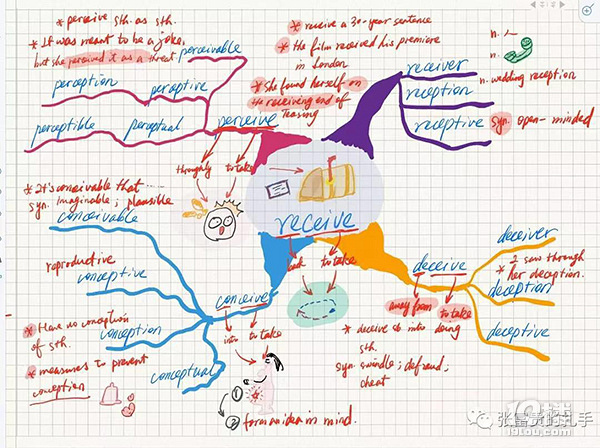 * perceive sth. as sth.
* It was meant to be a joke,
but she perceived it as a threat
perceivable
perception
perceptive
perceptible
perceptual
perceive
throughly
to take
* receive a 30-year sentence
* The film received his premiere
in London
* She found herself on
the receiving end of
teasing
receiver
reception
receptive
n.
n.
n. wedding reception
syn open-minded
receive
back
to take
* It's conceivable that ......
syn. imaginable; plausible
conceivable
reproductive
conceptive
conception
conceptual
conceive
into
to take
* Have no conception
of sth.
* measures to prevent
conception
①
② form an idea in mind.
deceive
away from
to take
deceiver
* I saw through
her deception.
deception
deceptive
* deceive sb into doing
sth.
syn. swindle; defraud;
cheat
张富贵的扎手
19楼
19lou.com